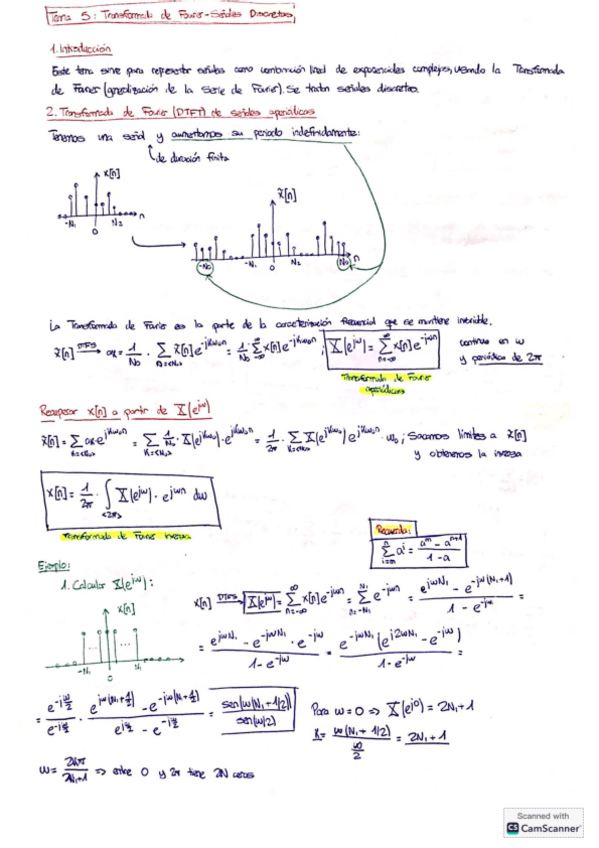 Tema 5: Transformada de Fourier-Señales Discretas
1. Introducción
Este tema sirve para representar señales como combinación lineal de exponenciales complejas, usando la Transformada
de Fourier (generalización de la Serie de Fourier). Se tratan señales discretas.
2. Transformada de Fourier (DTFT) de señales aperiódicas
Tenemos una señal y aumentamos su periodo indefinidamente:
de duración finita
x[n]
x̃[n]
-N₁ 0 N₂ n
-N₀ -N₁ 0 N₂ N₀ n
La Transformada de Fourier es la parte de la caracterización frecuencial que se mantiene invariable.
x̃[n] DTFS→ aₖ = 1/N₀ · Σ_{n=<N₀>} x̃[n]e^{-jkω₀n} = 1/N₀ · Σ_{-∞}^{∞} x[n]e^{-jkω₀n} ; X(e^{jω}) = Σ_{n=-∞}^{∞} x[n]e^{-jωn} continua en ω
y periódica de 2π
Transformada de Fourier
aperiódicas
Recuperar x[n] a partir de X(e^{jω})
x̃[n] = Σ_{k=<N₀>} aₖe^{jkω₀n} = Σ_{k=<N₀>} 1/N₀ · X(e^{jkω₀}) · e^{jkω₀n} = 1/2π · Σ_{k=<N₀>} X(e^{jkω₀}) e^{jkω₀n} · ω₀ ; Sacamos límites a x̃[n]
y obtenemos la inversa
x[n] = 1/2π · ∫_{<2π>} X(e^{jω}) · e^{jωn} dω
Transformada de Fourier inversa
Recuerda:
Σ_{i=m}^{n} a^i = (a^m - a^{n+1})/(1 - a)
Ejemplo:
1. Calcular X(e^{jω}):
x[n]
-N₁ 0 N₁
x[n] DTFS→ X(e^{jω}) = Σ_{n=-∞}^{∞} x[n]e^{-jωn} = Σ_{n=-N₁}^{N₁} e^{-jωn} = (e^{jωN₁} - e^{-jω(N₁+1)})/(1 - e^{-jω}) =
= (e^{jωN₁} - e^{-jωN₁} · e^{-jω})/(1 - e^{-jω}) = e^{-jωN₁}(e^{j2ωN₁} - e^{-jω})/(1 - e^{-jω}) =
= e^{-jω/2}/e^{-jω/2} · (e^{jω(N₁+1/2)} - e^{-jω(N₁+1/2)})/(e^{jω/2} - e^{-jω/2}) = sen(ω(N₁+1/2))/sen(ω/2)
Para ω=0 ⇒ X(e^{j0}) = 2N₁+1
X = ω(N₁+1/2)/(ω/2) = 2N₁+1
ω = 2kπ/(2N₁+1) ⇒ entre 0 y 2π tiene 2N ceros
Scanned with
CS CamScanner